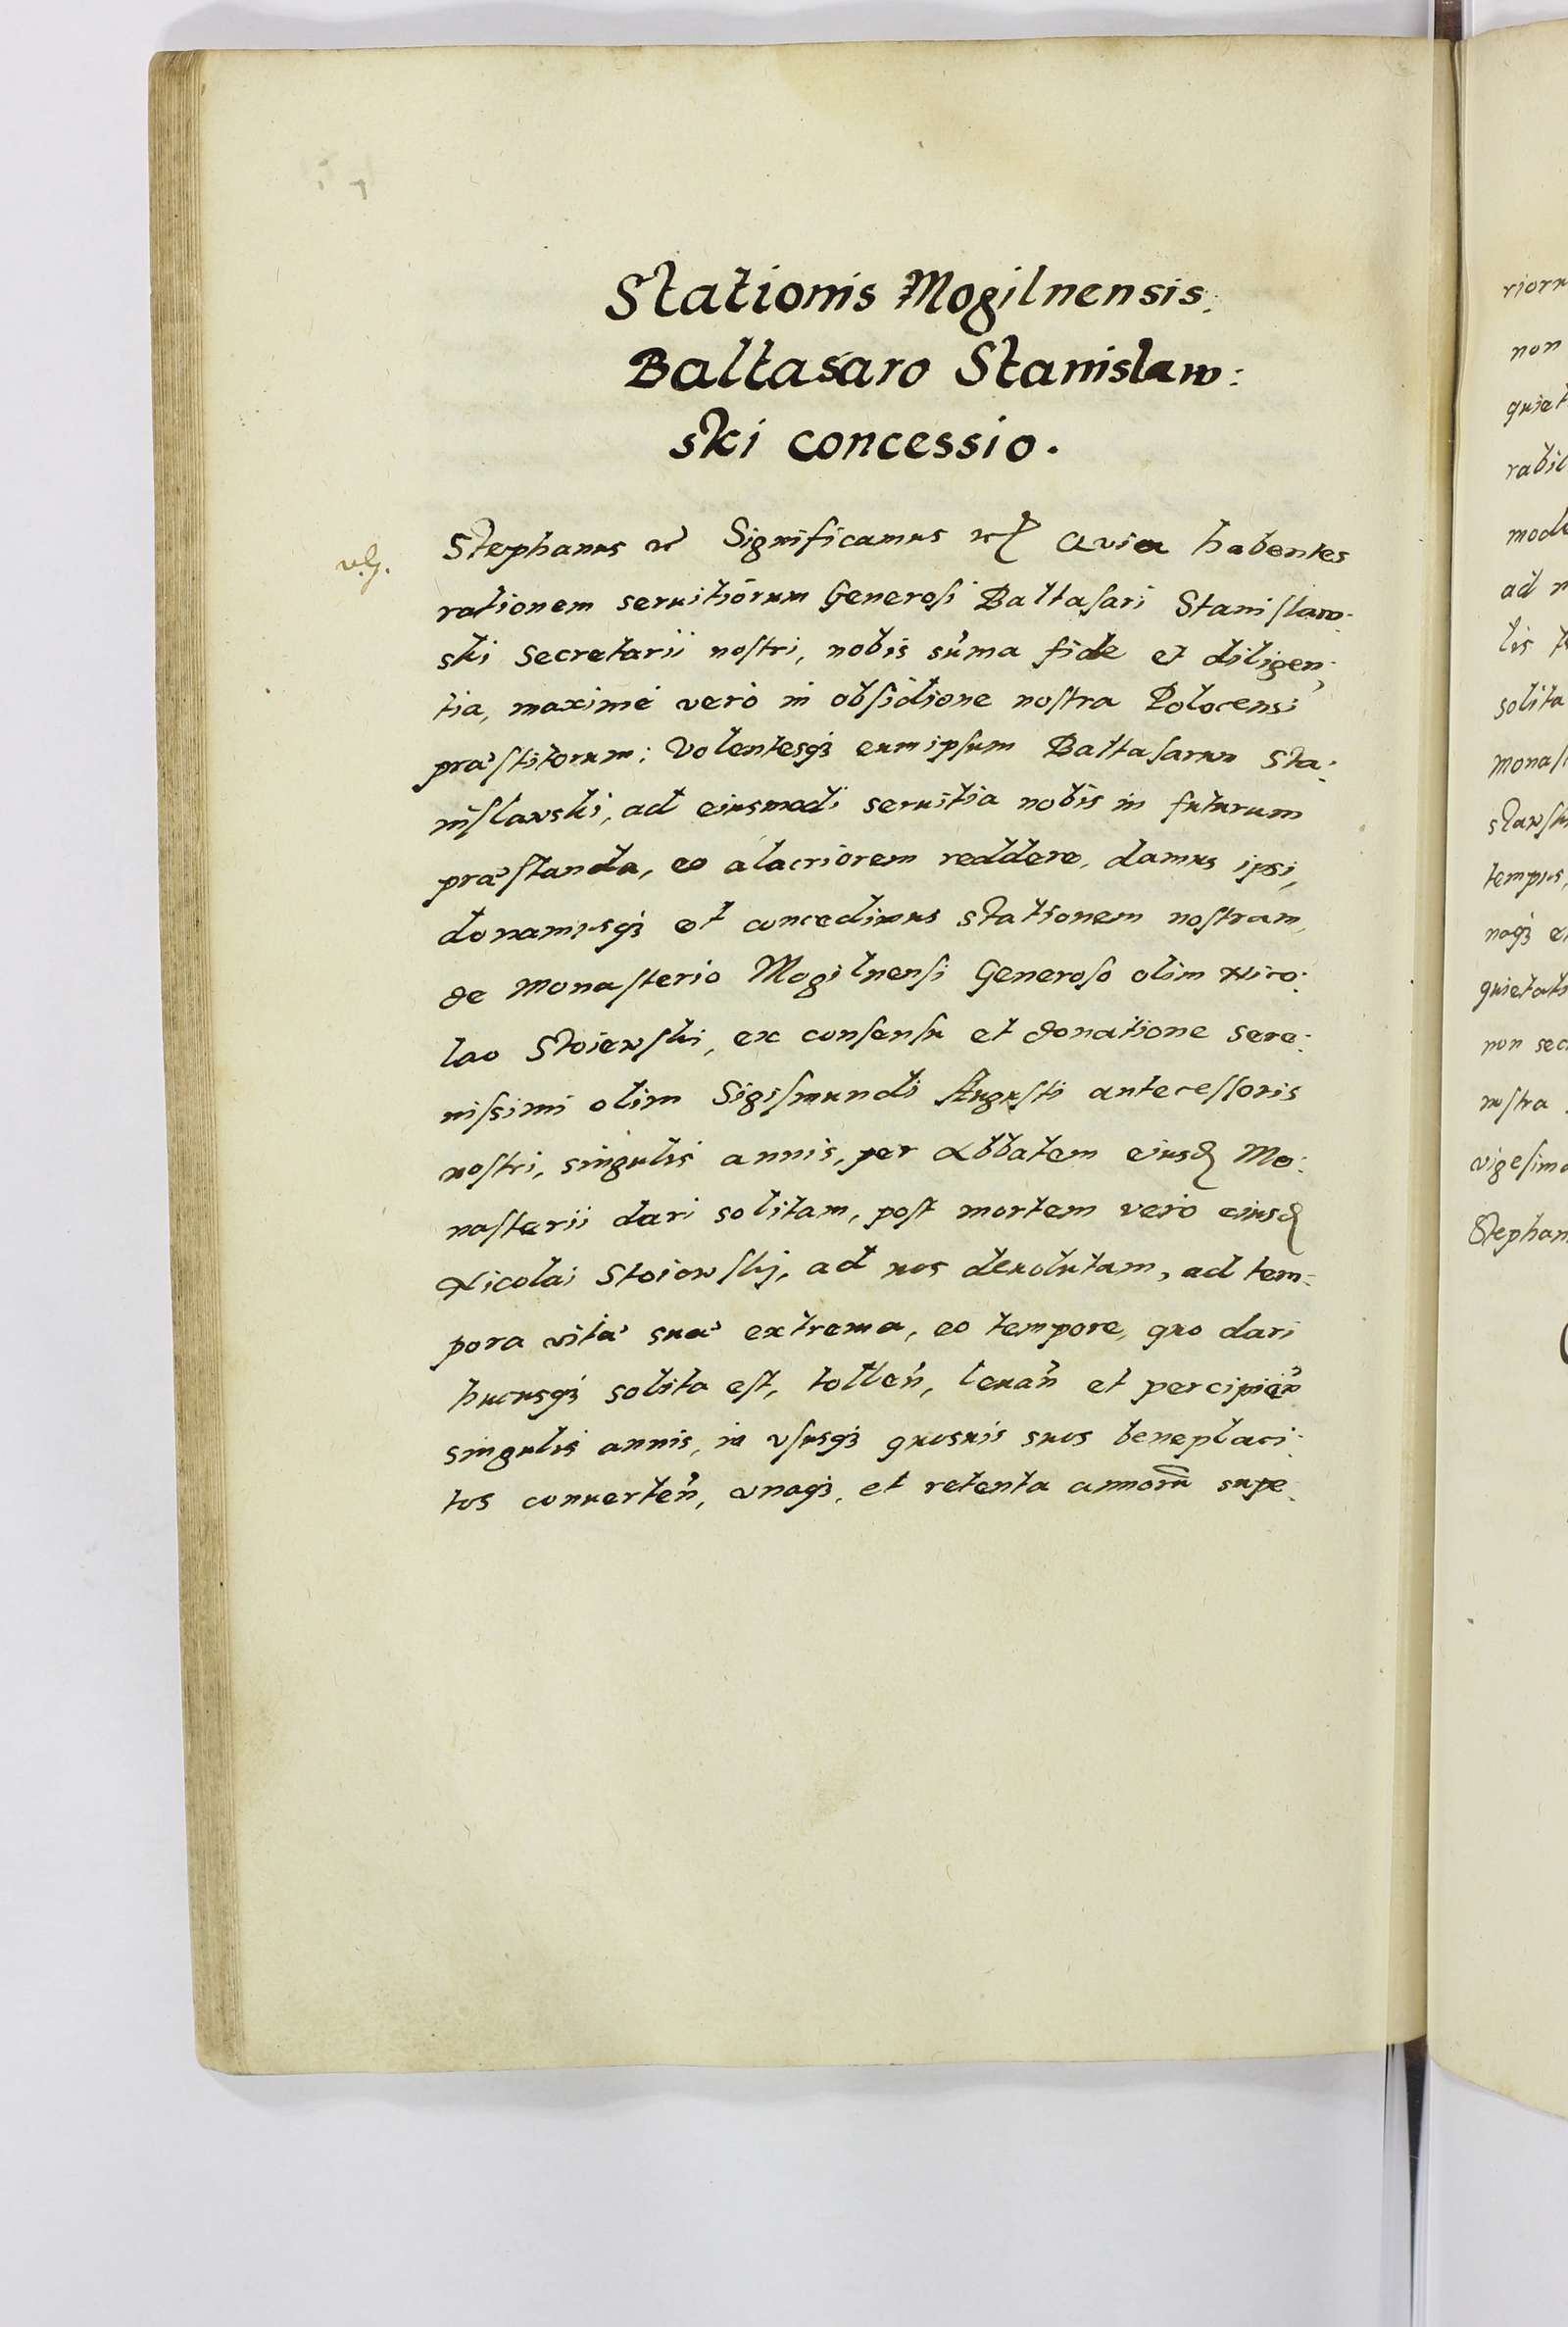 Stationis Mogilnensis.
Baltasaro Stanislaw:
ski concessio.
Stephanus &c Significamus &c Quia habentes
rationem seruitiorum Generosi Baltasari Stanislaw:
ski Secretarii nostri, nobis sũma fide et diligen:
tia, maximè verò in obsidione nostra Polocensi
præstitorum: Volentesqȝ eum ipsum Baltasarum Sta:
nislawski, ad eiusmodi seruitia nobis in futurum
præstanda, eo alacriorem reddere, damus ipsi,
donamusqȝ et concedimus stationem nostram,
de Monasterio Mogilnensi Generoso olim Nico:
lao Stoiewski, ex consensu et donatione sere:
nissimi olim Sigismundi Augusti antecessoris
nostri, singulis annis, per Abbatem eiusd Mo:
nasterii dari solitam, post mortem verò eiusd
Nicolai Stoiewskj, ad nos deuolutam, ad tem:
pora vitæ suæ extrema, eo tempore, quo dari
hucusqȝ solita est, tolleñ, leuañ et percipieñ
singulis annis, in vsusqȝ quosuis suos beneplaci:
tos conuerteñ, vnaqȝ, et retenta annorũ supe:
rioru
non
quiet
rabil
mod
ad
lis
solita
monas
stawsk
tempus,
naqȝ
quietat
non sec
nostra
vigesim
Stephan